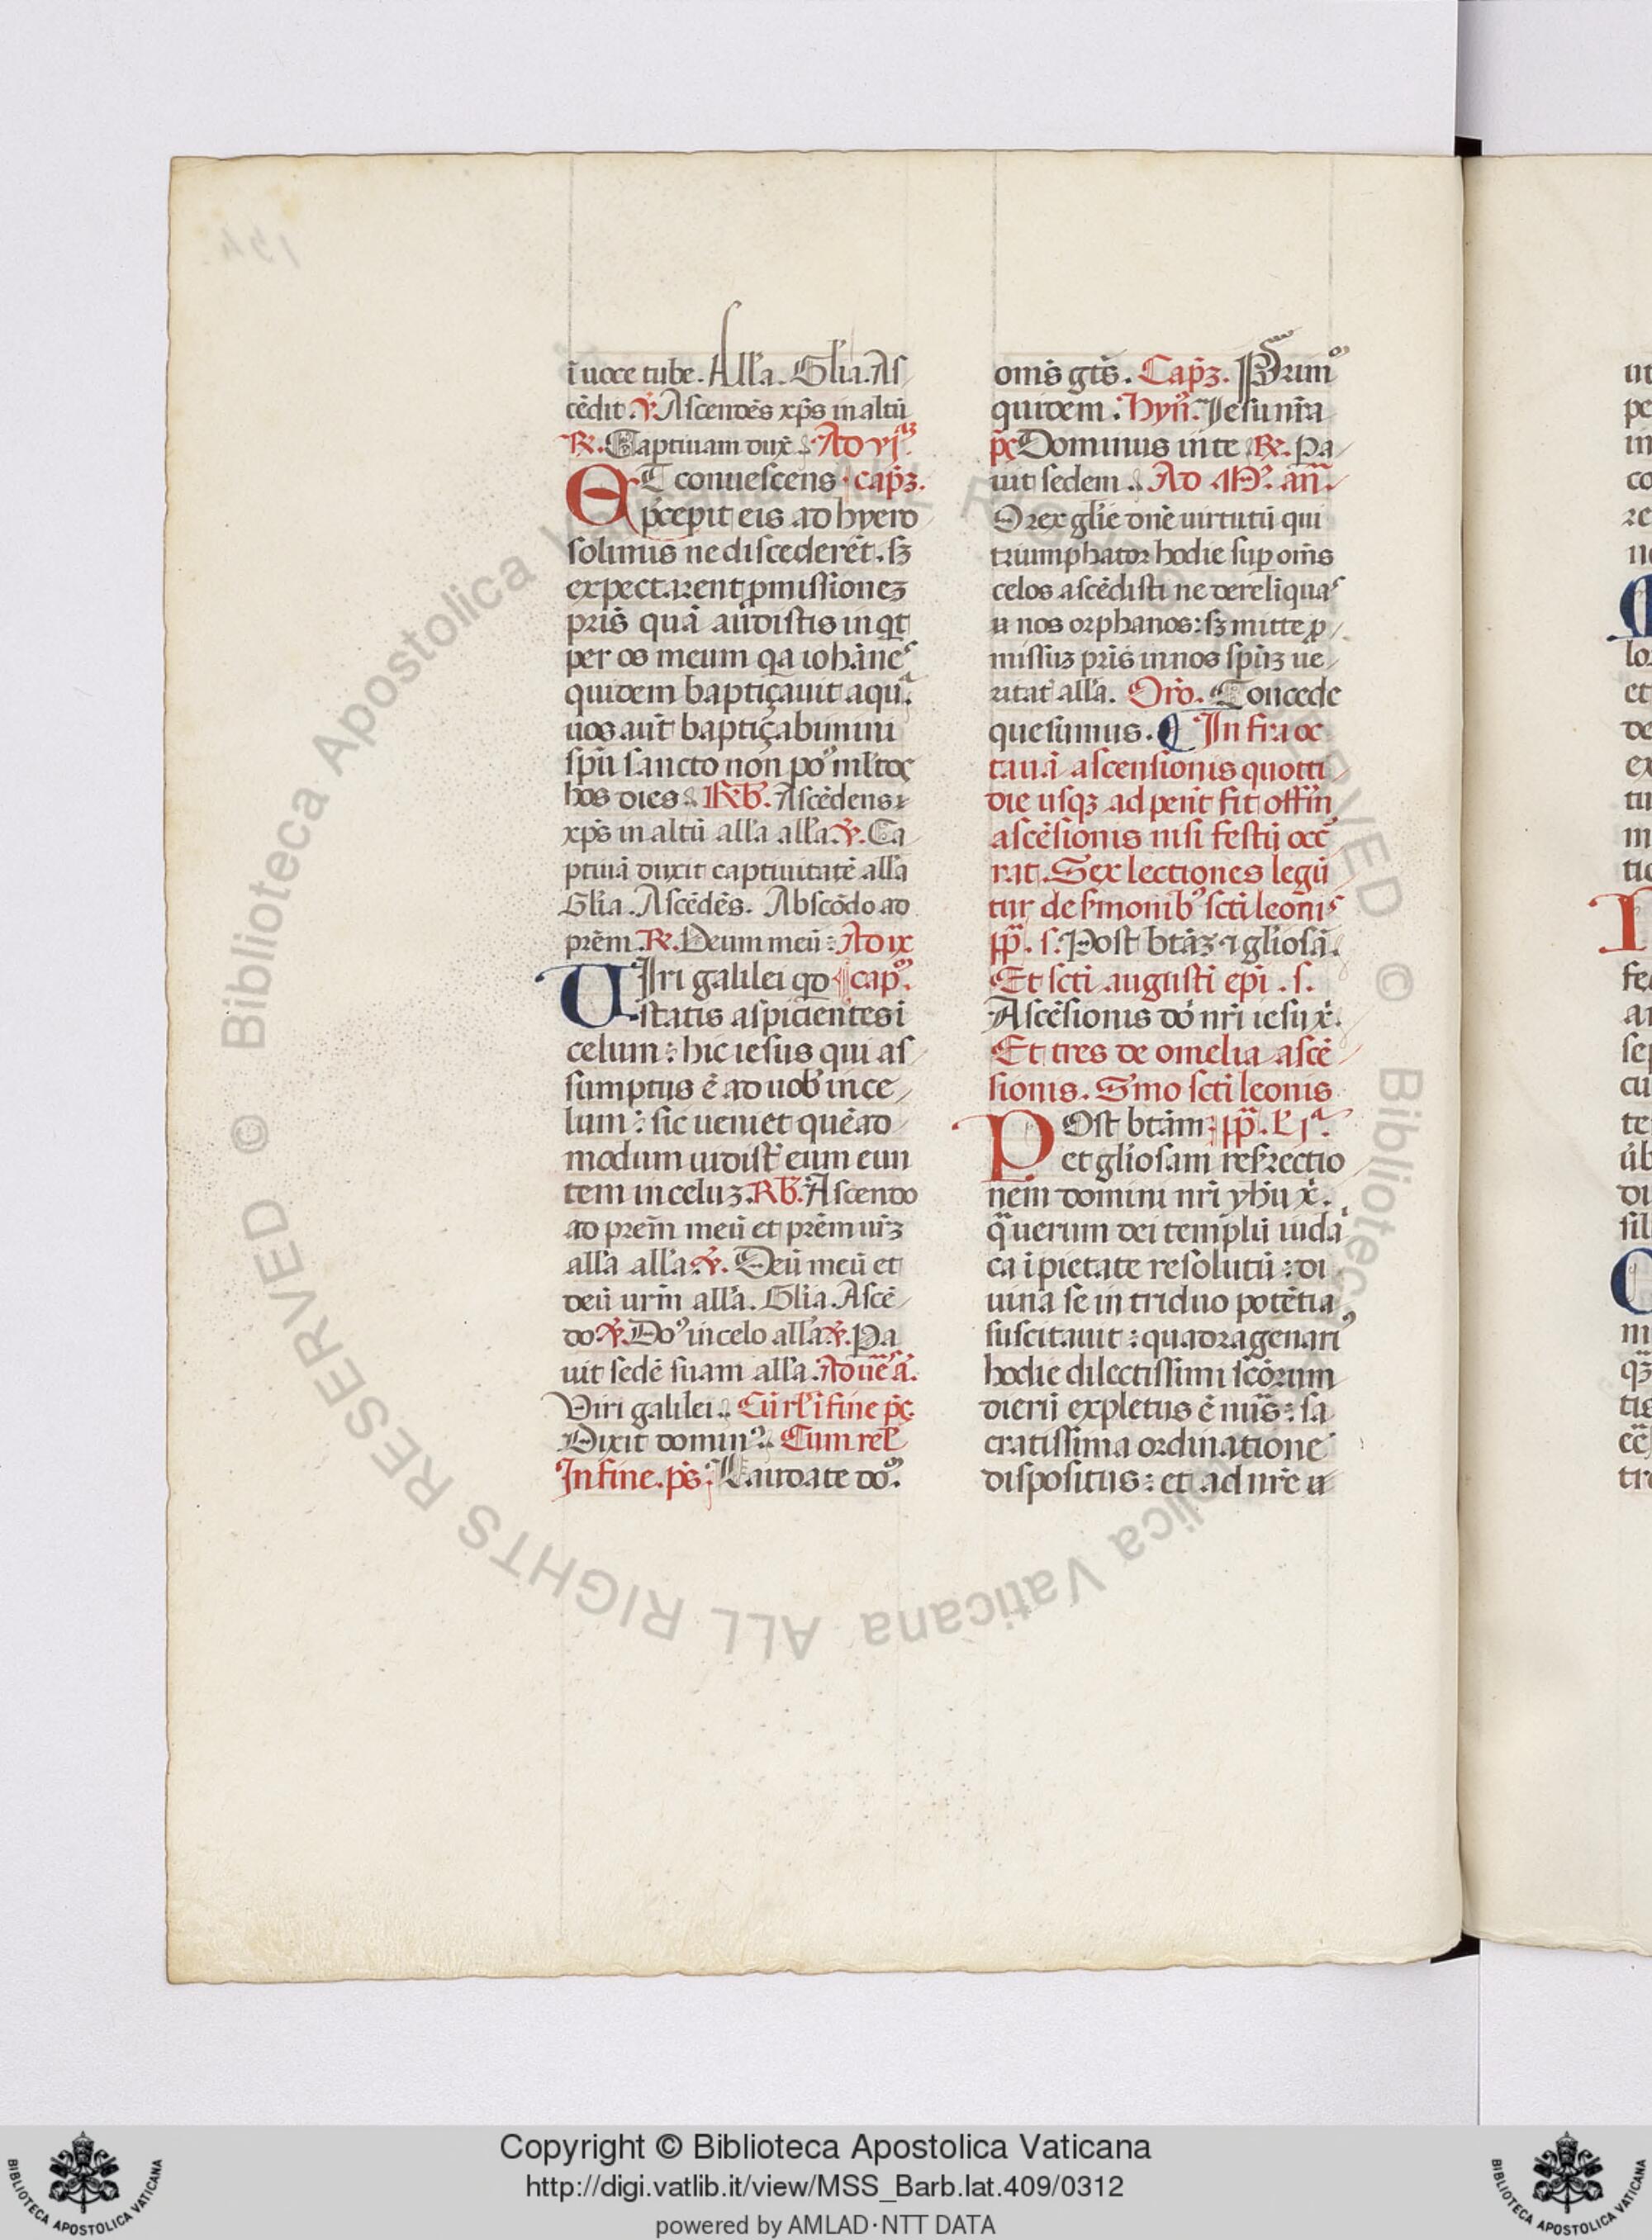 ī uoce tube. All'a. Gl'ia. As
cēdit. ℣. Ascendēs xp̄s in altū
℟. Captiuam dux̄. Ad vjᵃᵐ
ET conuescens capꝫ.
p̄cepit eis ad hyero
solimis ne discederēt. sꝫ
expectarent p̱missionez
pris̄ quā audistis inqt
per os meum qa iohānes
quidem baptiçauit aquᵃ.
uos aūt baptiçabimini
sp̄u sancto non po⁹ ml̄tos
hos dies. ℟b̄. Ascēdens
xp̄s in altū all'a all'a. ℣. Ca
ptiuā duxit captiuitatē all'a
Gl'ia. Ascēdēs. Abscōdo ad
prēm. ℟. Deum meū: Ad ix
UIri galilei qd cap.
statis aspicientes i
celum: hic iesus qui as
sumptus ē ad uob' in ce
lum: sic ueniet quēad
modum uidist' eum eun
tem in celuz. ℟b̄. Ascendo
ad prēm meū et prēm ur̄ꝫ
all'a all'a. ℣. Deū meū et
deū urm̄ all'a. Gl'ia. Ascē
do ℣. Do⁹ in celo all'a ℣. Pa
uit sedē suam all'a. Ad ue᷒ a.
Viri galilei. Cū rl' i fine p̄s.
Dixit domin⁹. Cum rel'
In fine. ps. Laudate do⁹.
omīs gt̄s. Capꝫ. Primᵒ
quidem. Hyn̄. Jesu nr̄a
p̄ꝫ Dominus in te ℟. Pa
uit sedem. Ad M̄. an̄.
O rex glie dnē uirtutū qui
triumphator hodie sup om̄s
celos ascēdisti ne derelīquas
a nos orphanos: sꝫ mitte p̱
missuꝫ pris̄ in nos spuꝫ ue
ritat' all'a. Orō. Concede
quesumus. ¶ In fra oc
tauā ascensionis quotti
die usqꝫ ad pent' fit offm̄
ascēsionis nisi festū occᵘ
rat. Sex lectiones legū
tur de s̄monib⁹ scti leonis
pp̄. s. Post btāꝫ ⁊ gl'iosā.
Et scti augusti epi. s.
Ascēsionis dō nr̄i iesu x̄.
Et tres de omelia ascē
sionis. Smo scti leonis
POst btām pp̄. L' jᵃ.
et gl'iosam resrectio
nem domini nr̄i yhu x̄.
qᵃ uerum dei templū iuda
ca i pietate resolutū: di
uina se in triduo potētia
suscitauit: quadragenari⁹
hodie dilectissimi scōrum
dierū expletus ē nūs: sa
cratissima ordinatione
dispositus: et ad nr̄e u
Copyright © Biblioteca Apostolica Vaticana
http://digi.vatlib.it/view/MSS_Barb.lat.409/0312
powered by AMLAD·NTT DATA
© Biblioteca Apostolica Vaticana ALL RIGHTS RESERVED
BIBLIOTECA APOSTOLICA VATICANA
BIBLIOTECA APOSTOLICA VATICANA